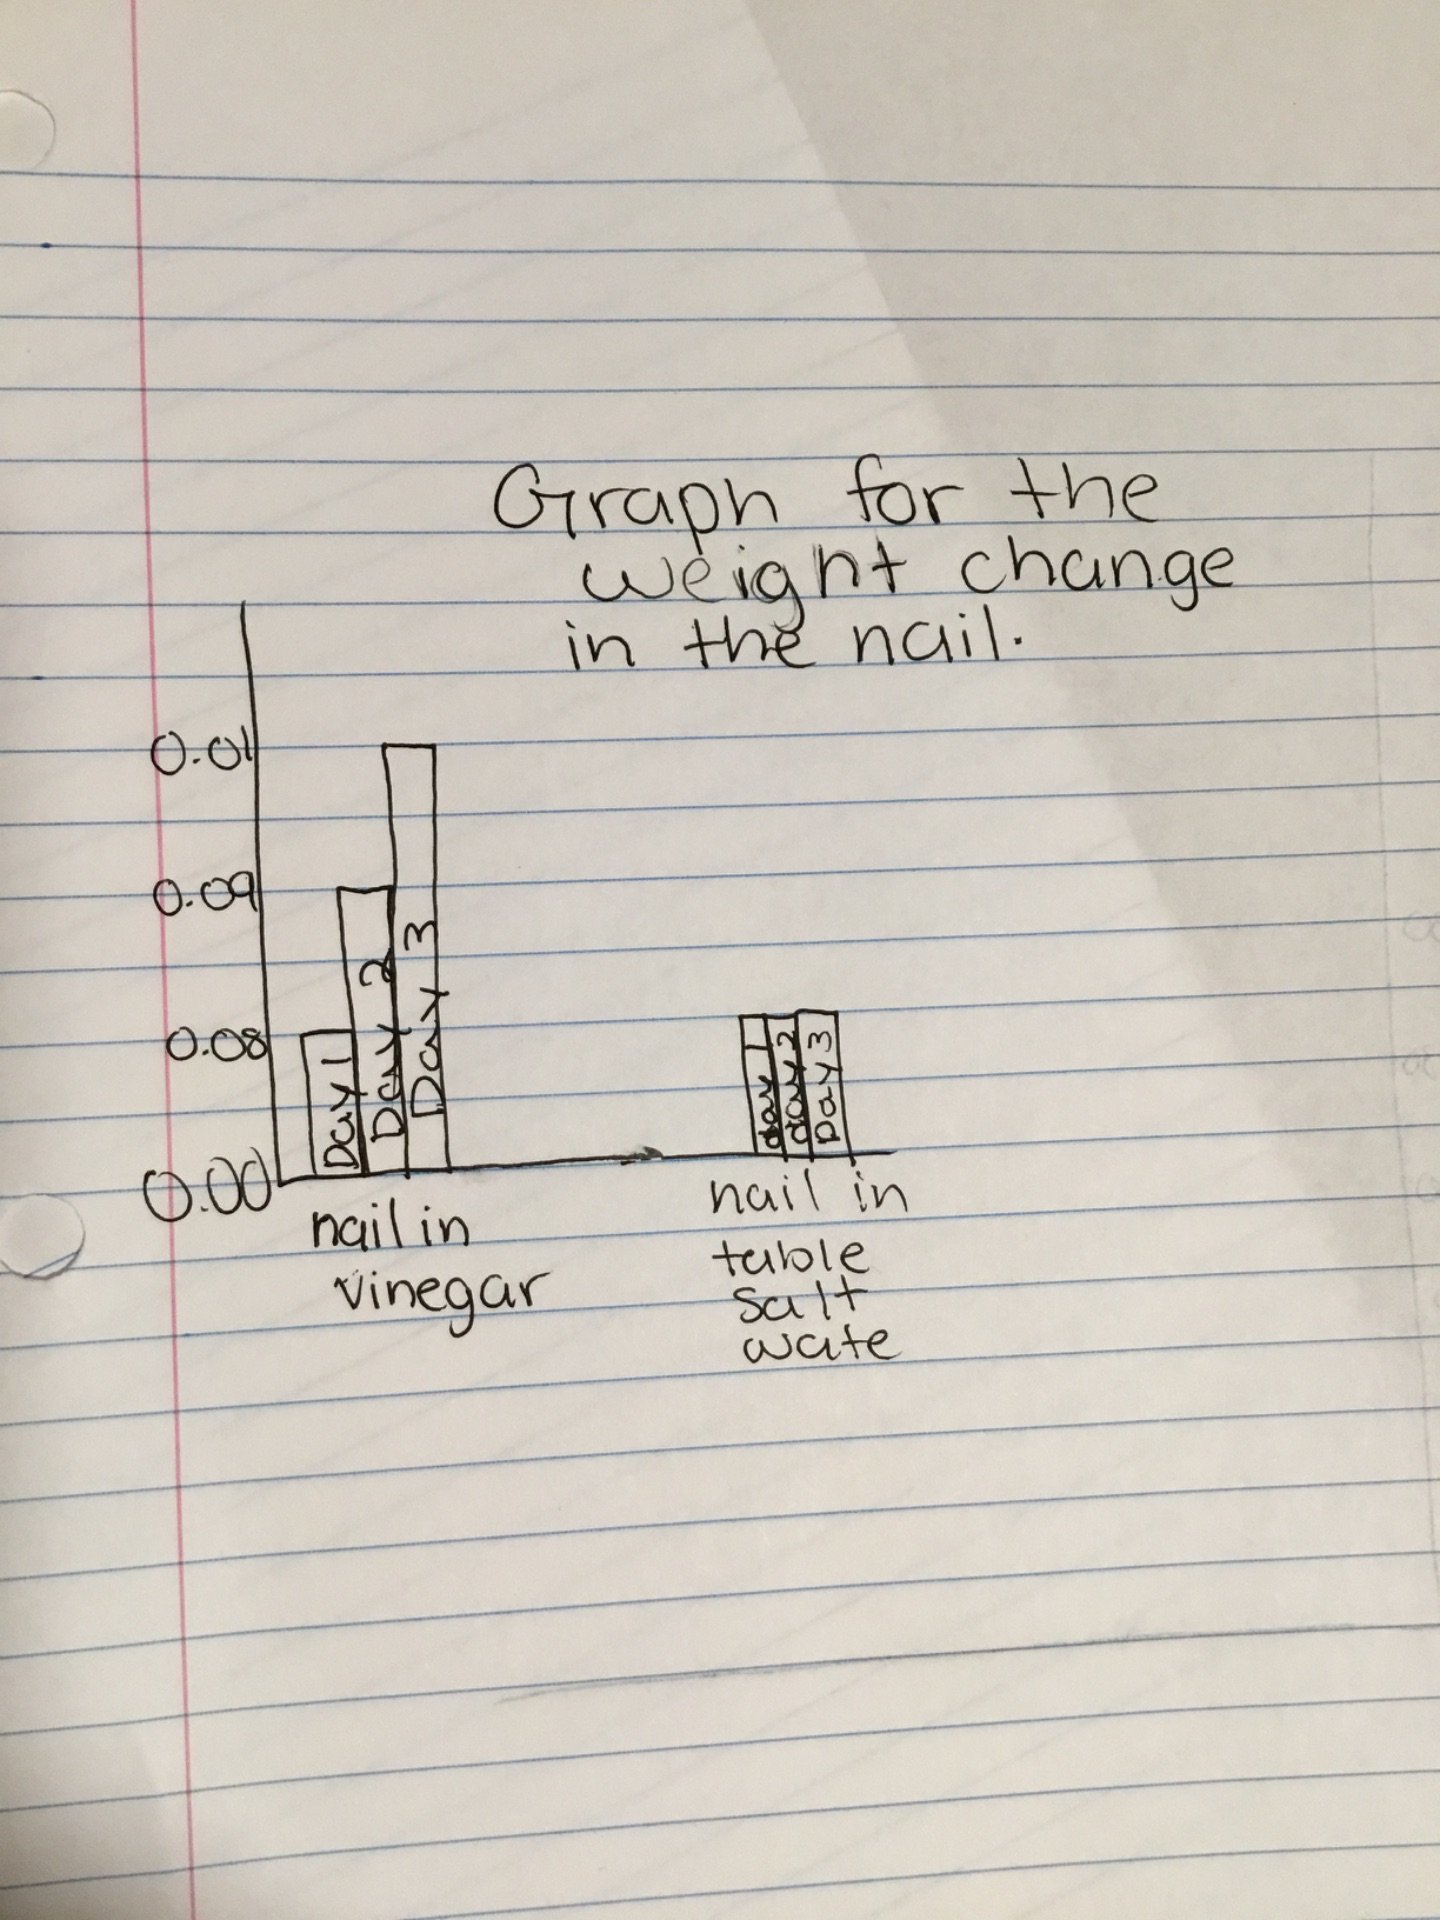 Graph for the
weight change
in the nail.
0.01
0.09
0.08
0.00
Day 1
Day 2
Day 3
day 1
day 2
Day 3
nail in
vinegar
nail in
table
salt
wate